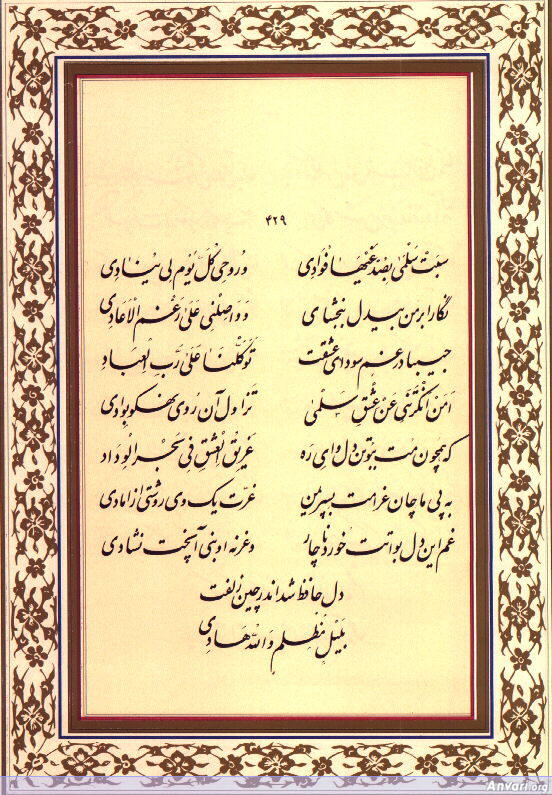 ۴۲۹
سبت سلمی بصدغیها فؤادی وروحی کل یوم لی ینادی
نگارا بر من بیدل ببخشای وواصلنی علی رغم الاعادی
حبیبا در غم سودای عشقت توکلنا علی رب العباد
امن انکرتنی عن عشق سلمی تزاول آن روی نهکو بوادی
که همچون مت ببوتن دل وای ره غریق العشق فی بحر الوداد
به پی ماچان غرامت بسپریمن غرت یک وی روشتی از امادی
غم این دل بواتت خورد ناچار وغرنه او بنی آنچت نشادی
دل حافظ شد اندر چین زلفت
بلیل مظلم والله هادی
Anvari.org